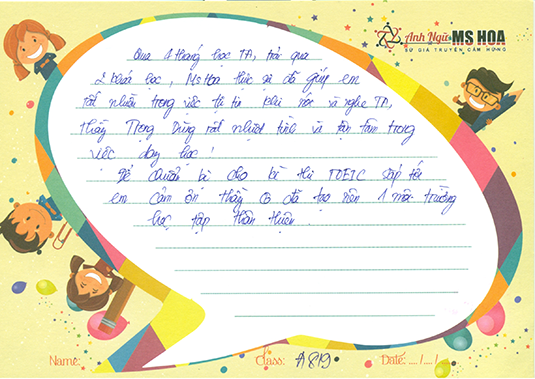 Anh Ngữ MS HOA
SỨ GIẢ TRUYỀN CẢM HỨNG
Qua 4 tháng học TA, trải qua
2 khoá học, Ms Hoa thực sự đã giúp em
rất nhiều trong việc tự tin khi nói và nghe TA,
thầy Trọng Dũng rất nhiệt tình và tận tâm trong
việc dạy học!
Để chuẩn bị cho kì thi TOEIC sắp tới
em cảm ơn thầy cô đã tạo nên 1 môi trường
học tập thân thiện.
Name:
Class: A819
Date: .... / .... / ....